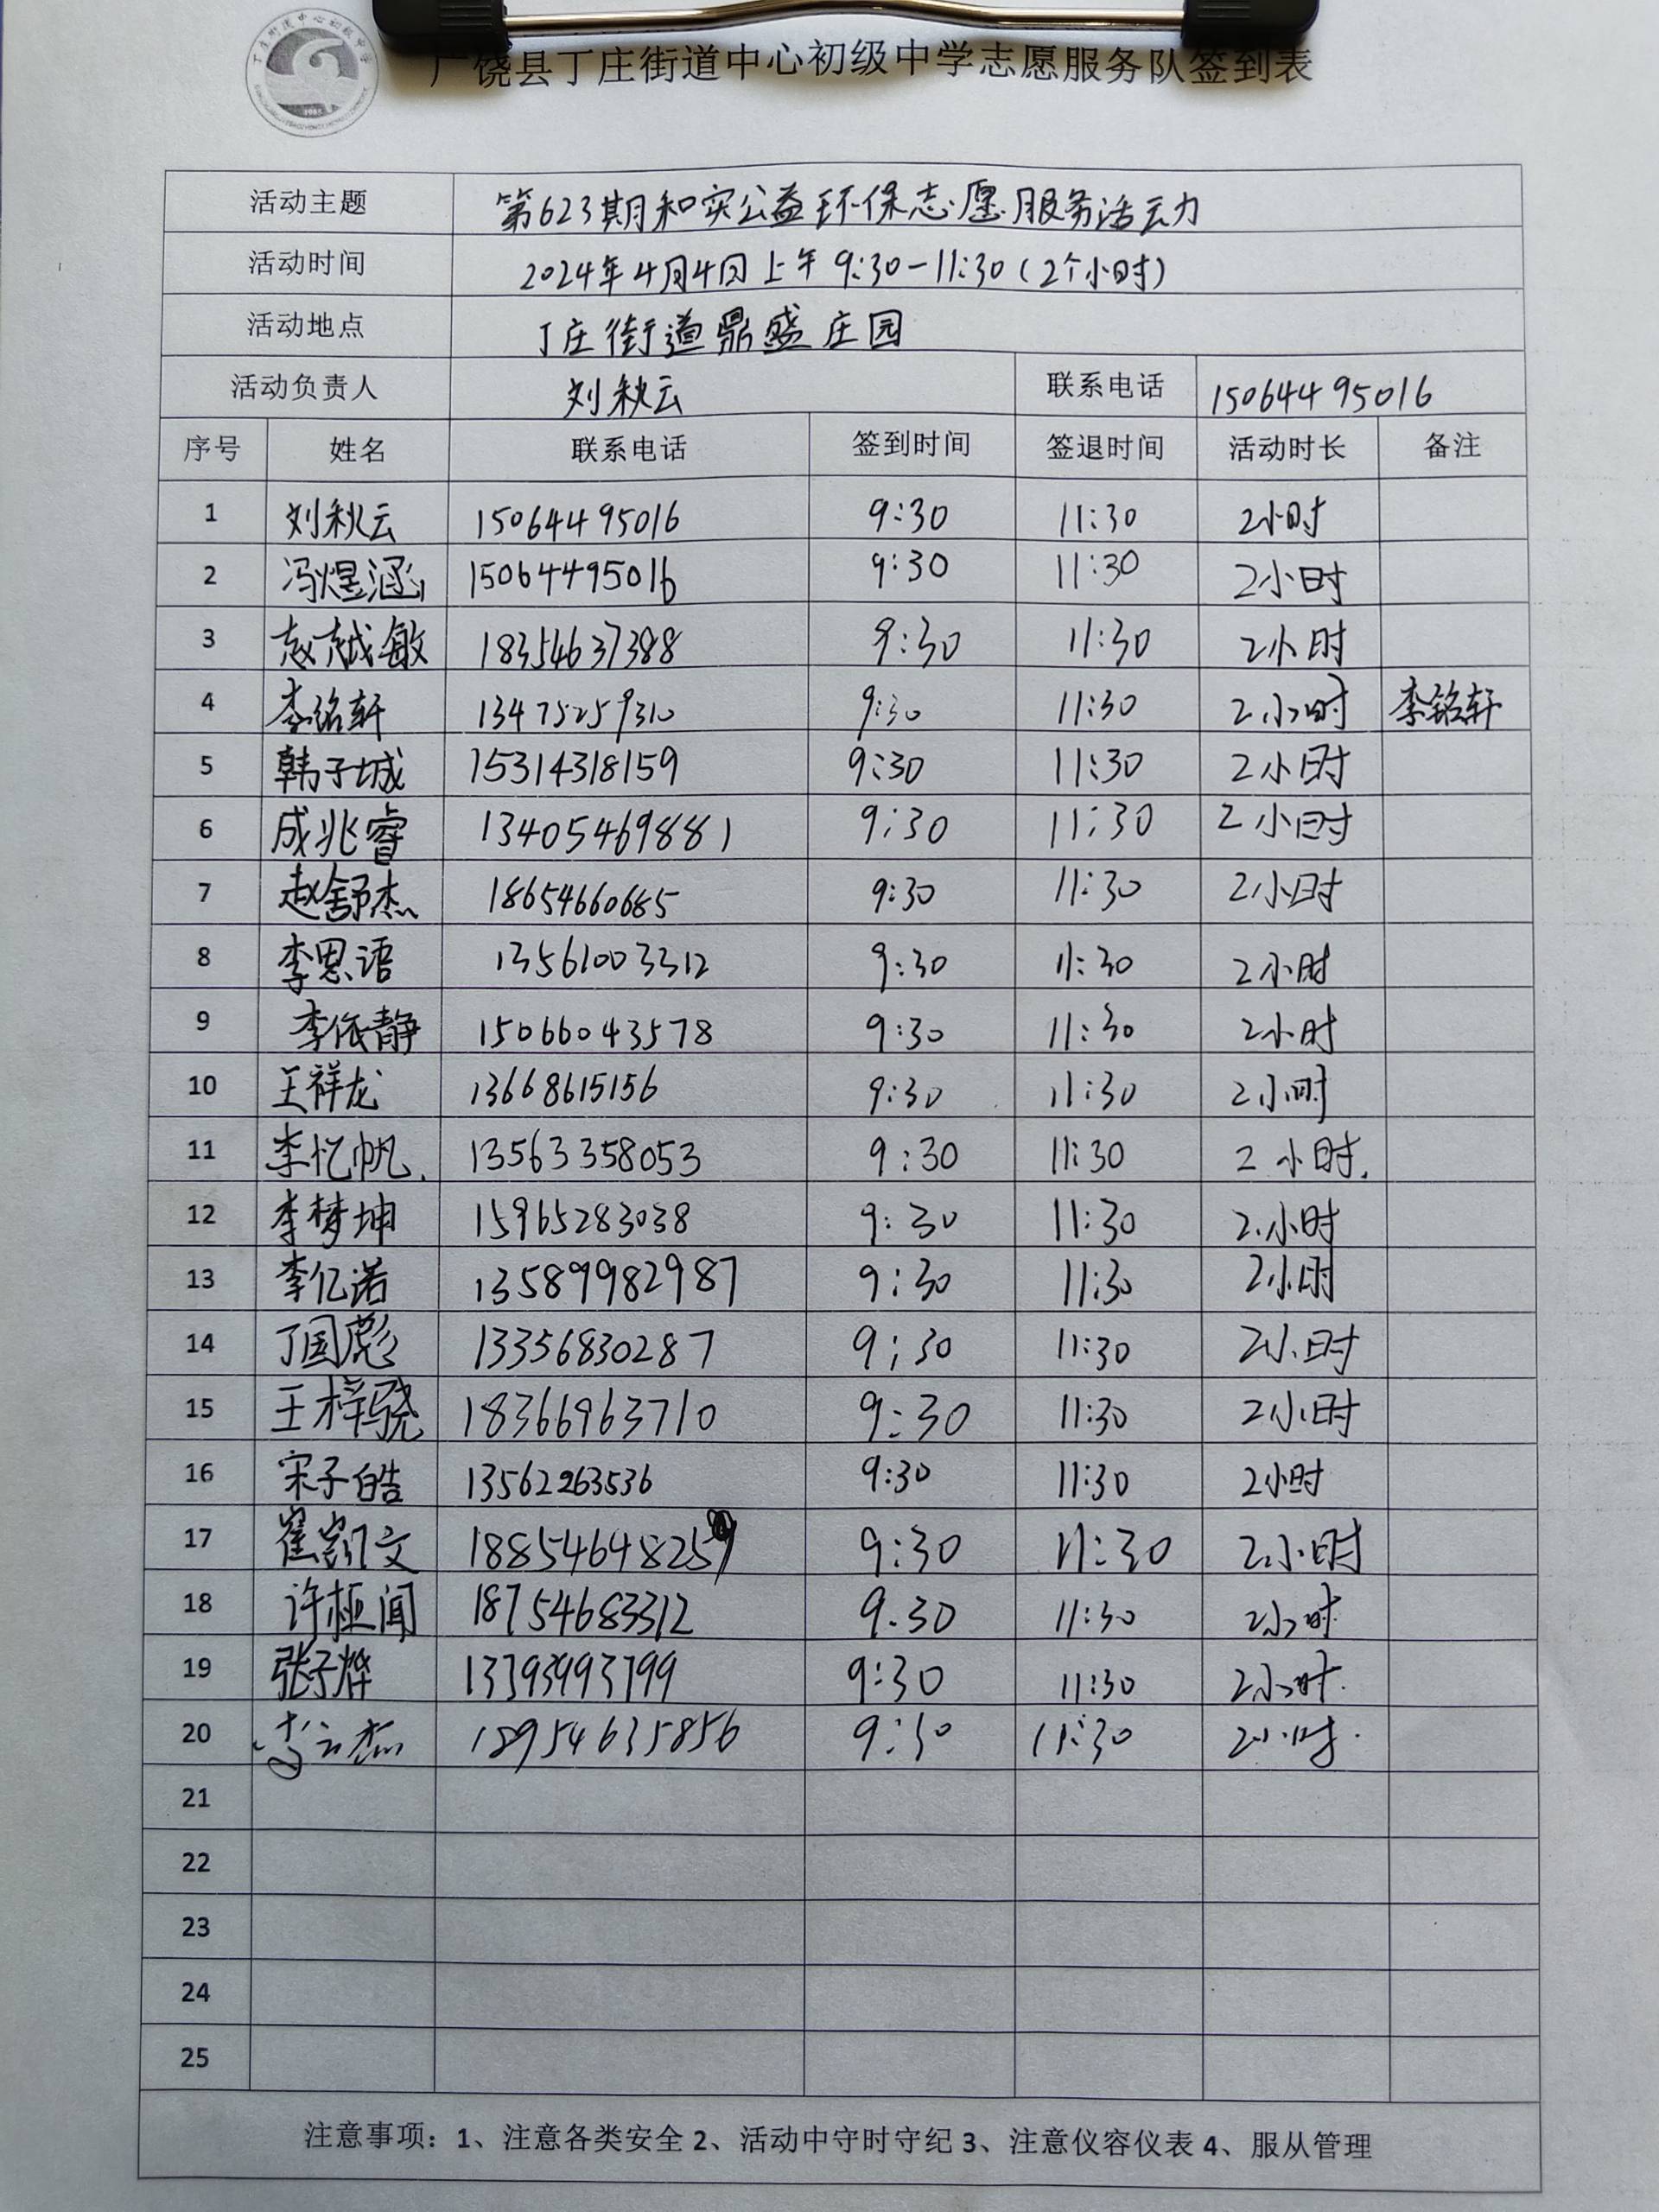 丁庄街道中心初级中学
广饶县丁庄街道中心初级中学志愿服务队签到表
活动主题 第623期和实公益环保志愿服务活动
活动时间 2024年4月4日上午9:30-11:30(2个小时)
活动地点 丁庄街道鼎盛庄园
活动负责人 刘秋云 联系电话 15064495016
序号 姓名 联系电话 签到时间 签退时间 活动时长 备注
1 刘秋云 15064495016 9:30 11:30 2小时
2 冯煜涵 15064495016 9:30 11:30 2小时
3 赵越敏 18354637388 9:30 11:30 2小时
4 李铭轩 13475259310 9:30 11:30 2小时 李铭轩
5 韩子城 15314318159 9:30 11:30 2小时
6 成兆睿 13405469881 9:30 11:30 2小时
7 赵舒杰 18654660665 9:30 11:30 2小时
8 李思语 13561003312 9:30 11:30 2小时
9 李依静 15066043578 9:30 11:30 2小时
10 王祥龙 13668615156 9:30 11:30 2小时
11 李忆帆. 13563358053 9:30 11:30 2小时.
12 李梦坤 15965283038 9:30 11:30 2小时
13 李亿诺 13589982987 9:30 11:30 2小时
14 丁国彪 13356830287 9:30 11:30 2小时
15 王梓骁 18366963710 9:30 11:30 2小时
16 宋子皓 13562263536 9:30 11:30 2小时
17 崔凯文 18854648259 9:30 11:30 2小时
18 许桓闻 18754683312 9.30 11:30 2小时
19 张子烨 13793993799 9:30 11:30 2小时.
20 李云杰 18954635856 9:30 11:30 2小时.
21
22
23
24
25
注意事项：1、注意各类安全 2、活动中守时守纪 3、注意仪容仪表 4、服从管理